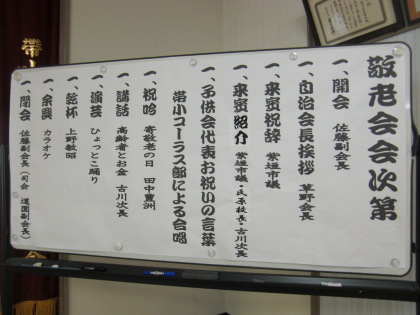 敬老会会次第
一、開会 佐藤副会長
一、自治会長挨拶 草野会長
一、来賓祝辞 紫垣市議
一、来賓紹介 紫垣市議・氏原校長・古川次長
一、子供会代表お祝いの言葉
帯小コーラス部による合唱
一、祝吟 寄敬老の日 田中豊洲
一、講話 高齢者とお金 古川次長
一、演芸 ひょっとこ踊り
一、乾杯 上野敏昭
一、余興 カラオケ
一、閉会 佐藤副会長(司会 道園副会長)